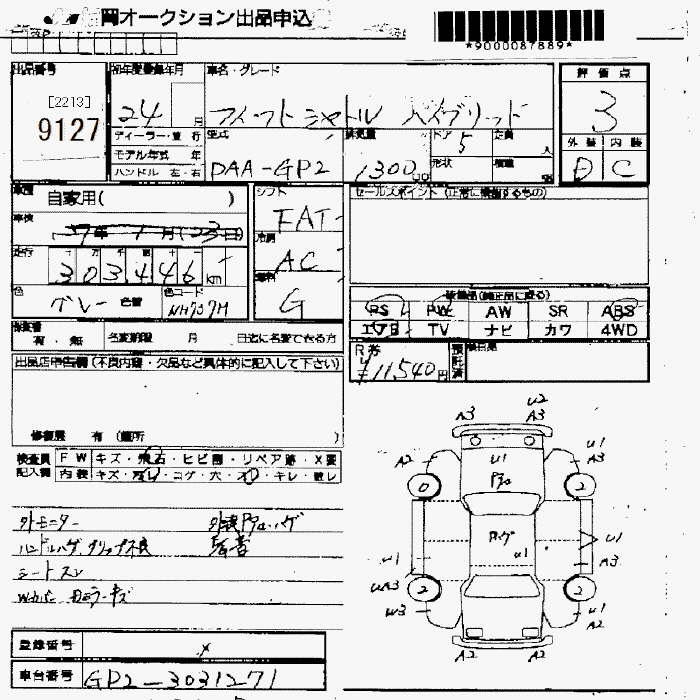 岡オークション出品申込
*9000087889*
出品番号
[2213]
9127
初年度登録年月
24 月
ディーラー・並行
モデル年式 年
ハンドル 左・右
車名・グレード
フィットシャトル ハイブリッド
型式
DAA-GP2
排気量
1300
ドア
5
定員
人
形状
積載
評価点
3
外装 内装
D C
車歴
自家用( )
車検
7年7月(23日)
走行
十 万 千 百 十
303446km
色
グレー
色替
色コード
NH737M
シフト
FAT
冷房
AC
燃料
G
セールスポイント(正常に機能するもの)
装備品(純正品に限る)
PS PW AW SR ABS
エアB TV ナビ カワ 4WD
有・無 名変期限 月 日迄に名変できる方
R券
¥11,540円
預託済
出品店申告欄(不良内容・欠品など具体的に記入して下さい)
修復歴 有(箇所 )
検査員記入欄
FW キズ・飛石・ヒビ割・リペア跡・X要
内装 キズ・汚レ・コゲ・穴・スレ・キレ・散レ
外モニター
ハンドルハゲ グリップ不良
シートスレ
外装
U2
A3 A3
A2 U1 U1 A3
0 2
ハゲ
U1 U1 U1
A3
UA3
2 2
W3 U1 A2
A2 A2
登録番号
車台番号
GP2-3031271